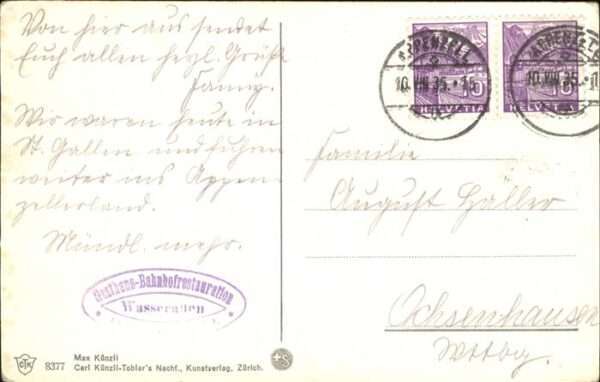 Von hier aus sendet
Euch allen herzl. Grüße
Fanny.
Wir waren heute in
St. Gallen und fuhren
weiter ins Appen-
zellerland.
Mündl. mehr.
Gasthaus-Bahnhofrestauration
Wasserauen
8377
Max Künzli
Carl Künzli-Tobler's Nachf., Kunstverlag, Zürich.
APPENZELL
10.VIII.35.
HELVETIA
10
APPENZELL
10.VIII.35.
HELVETIA
10
Familie
August Haller
Ochsenhausen
Wttbg.